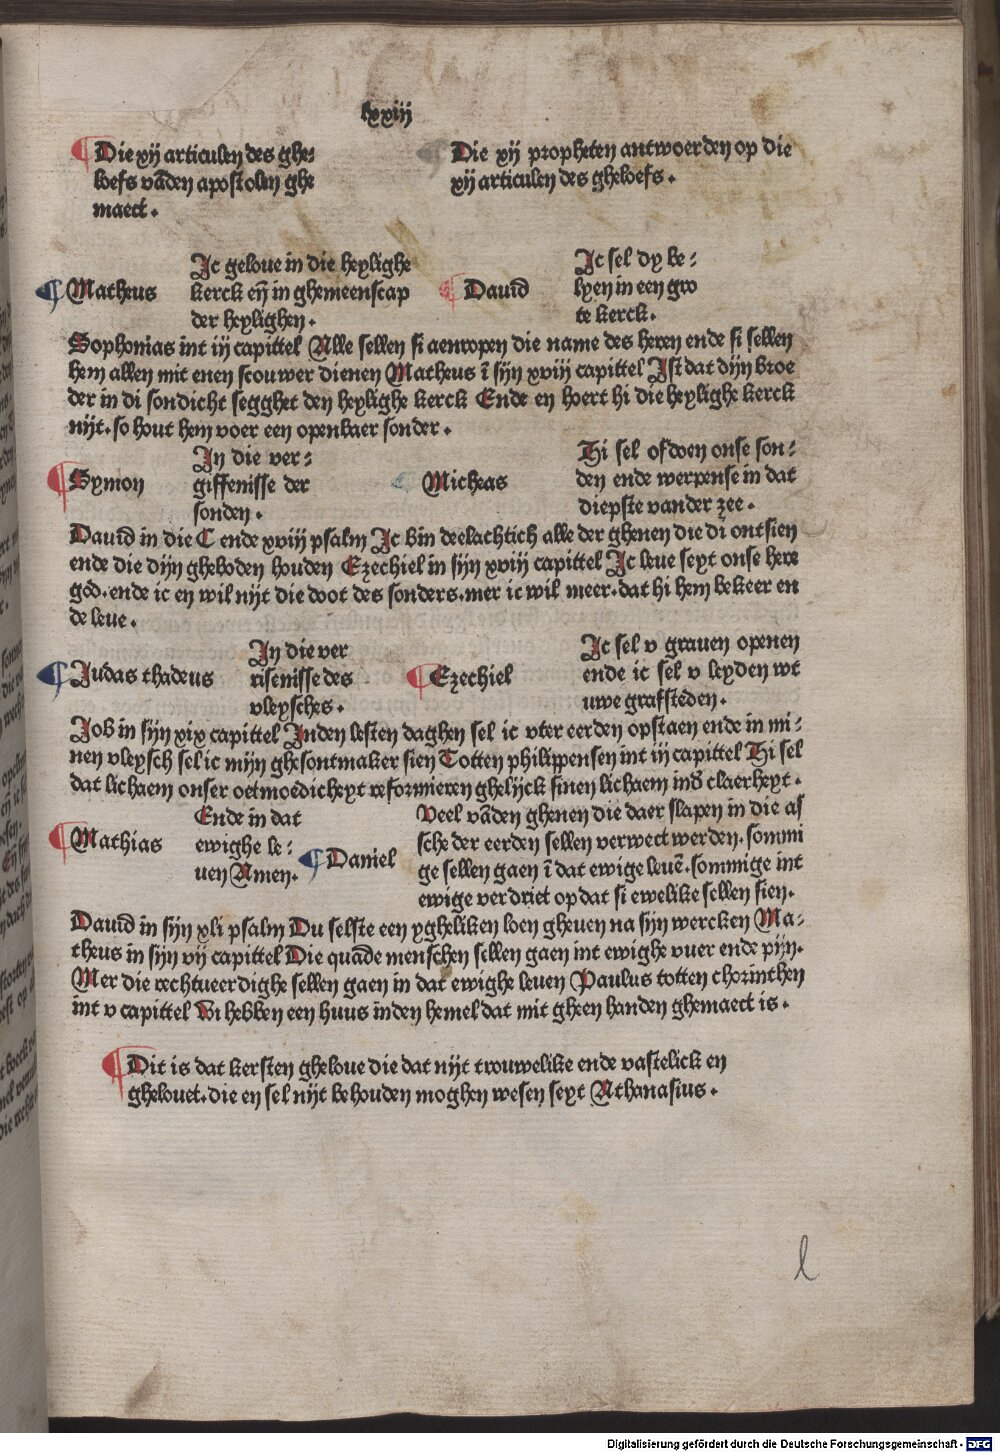 lxxiij
Die xij articulen des ghe-
loefs vādenapostolen ghe
maect.
Die xij propheten antwoerden op die
xij articulen des gheloefs.
Matheus
Ic geloue in die heylighe
kerck eñ in ghemeenscap
der heylighen.
Dauid
Ic sel dy be-
lyen in een gro
te kerck.
Sophonias int iij capittel Alle sellen si aenropen die name des heren ende si sellen
hem allen mit enen scouwer dienen Matheus ī sijn xviij capittel Ist dat dijn broe
der in di sondicht segghet den heylighe kerck Ende en hoert hi die heylighe kerck
nijt. so hout hem voer een openbaer sonder.
Symon
In die ver-
giffenisse der
sonden.
Micheas
Hi sel ofdoen onse son-
den ende werpense in dat
diepste vander zee.
Dauid in die C ende xviij psalm Ic bin deelachtich alle der ghenen die di ontsien
ende die dijn gheboden houden Ezechiel in sijn xviij capittel Ic leue seyt onse here
god. ende ic en wil nijt die doot des sonders. mer ic wil meer. dat hi hem bekeer en
de leue.
Judas thadeus
In die ver
risenisse des
vleysches.
Ezechiel
Ic sel v grauen openen
ende ic sel v leyden wt
uwe grafsteden.
Job in sijn xix capittel Inden lesten daghen sel ic vter eerden opstaen ende in mi-
nen vleysch sel ic mijn ghesontmaker sien Totten philippensen int iij capittel Hi sel
dat lichaem onser oetmoedicheyt reformieren ghelijck sinen lichaem ind claerheyt.
Mathias
Ende in dat
ewighe le-
uen Amen.
Daniel
Veel vāden ghenen die daer slapen in die as
sche der eerden sellen verwect werden. sommi
ge sellen gaen ī dat ewige leuē. sommige int
ewige verdriet op dat si ewelike sellen sien.
Dauid in sijn xli psalm Du selste een ygheliken loen gheuen na sijn wercken Ma-
theus in sijn vij capittel Die quade menschen sellen gaen int ewighe vuer ende pijn.
Mer die rechtueerdighe sellen gaen in dat ewighe leuen Paulus totten chorinthen
int v capittel Wi hebben een huus inden hemel dat mit gheen handen ghemaect is.
Dit is dat kersten gheloue die dat nijt trouwelike ende vastelick en
ghelouet. die en sel nijt behouden moghen wesen seyt Athanasius.
l
Digitalisierung gefördert durch die Deutsche Forschungsgemeinschaft - DFG